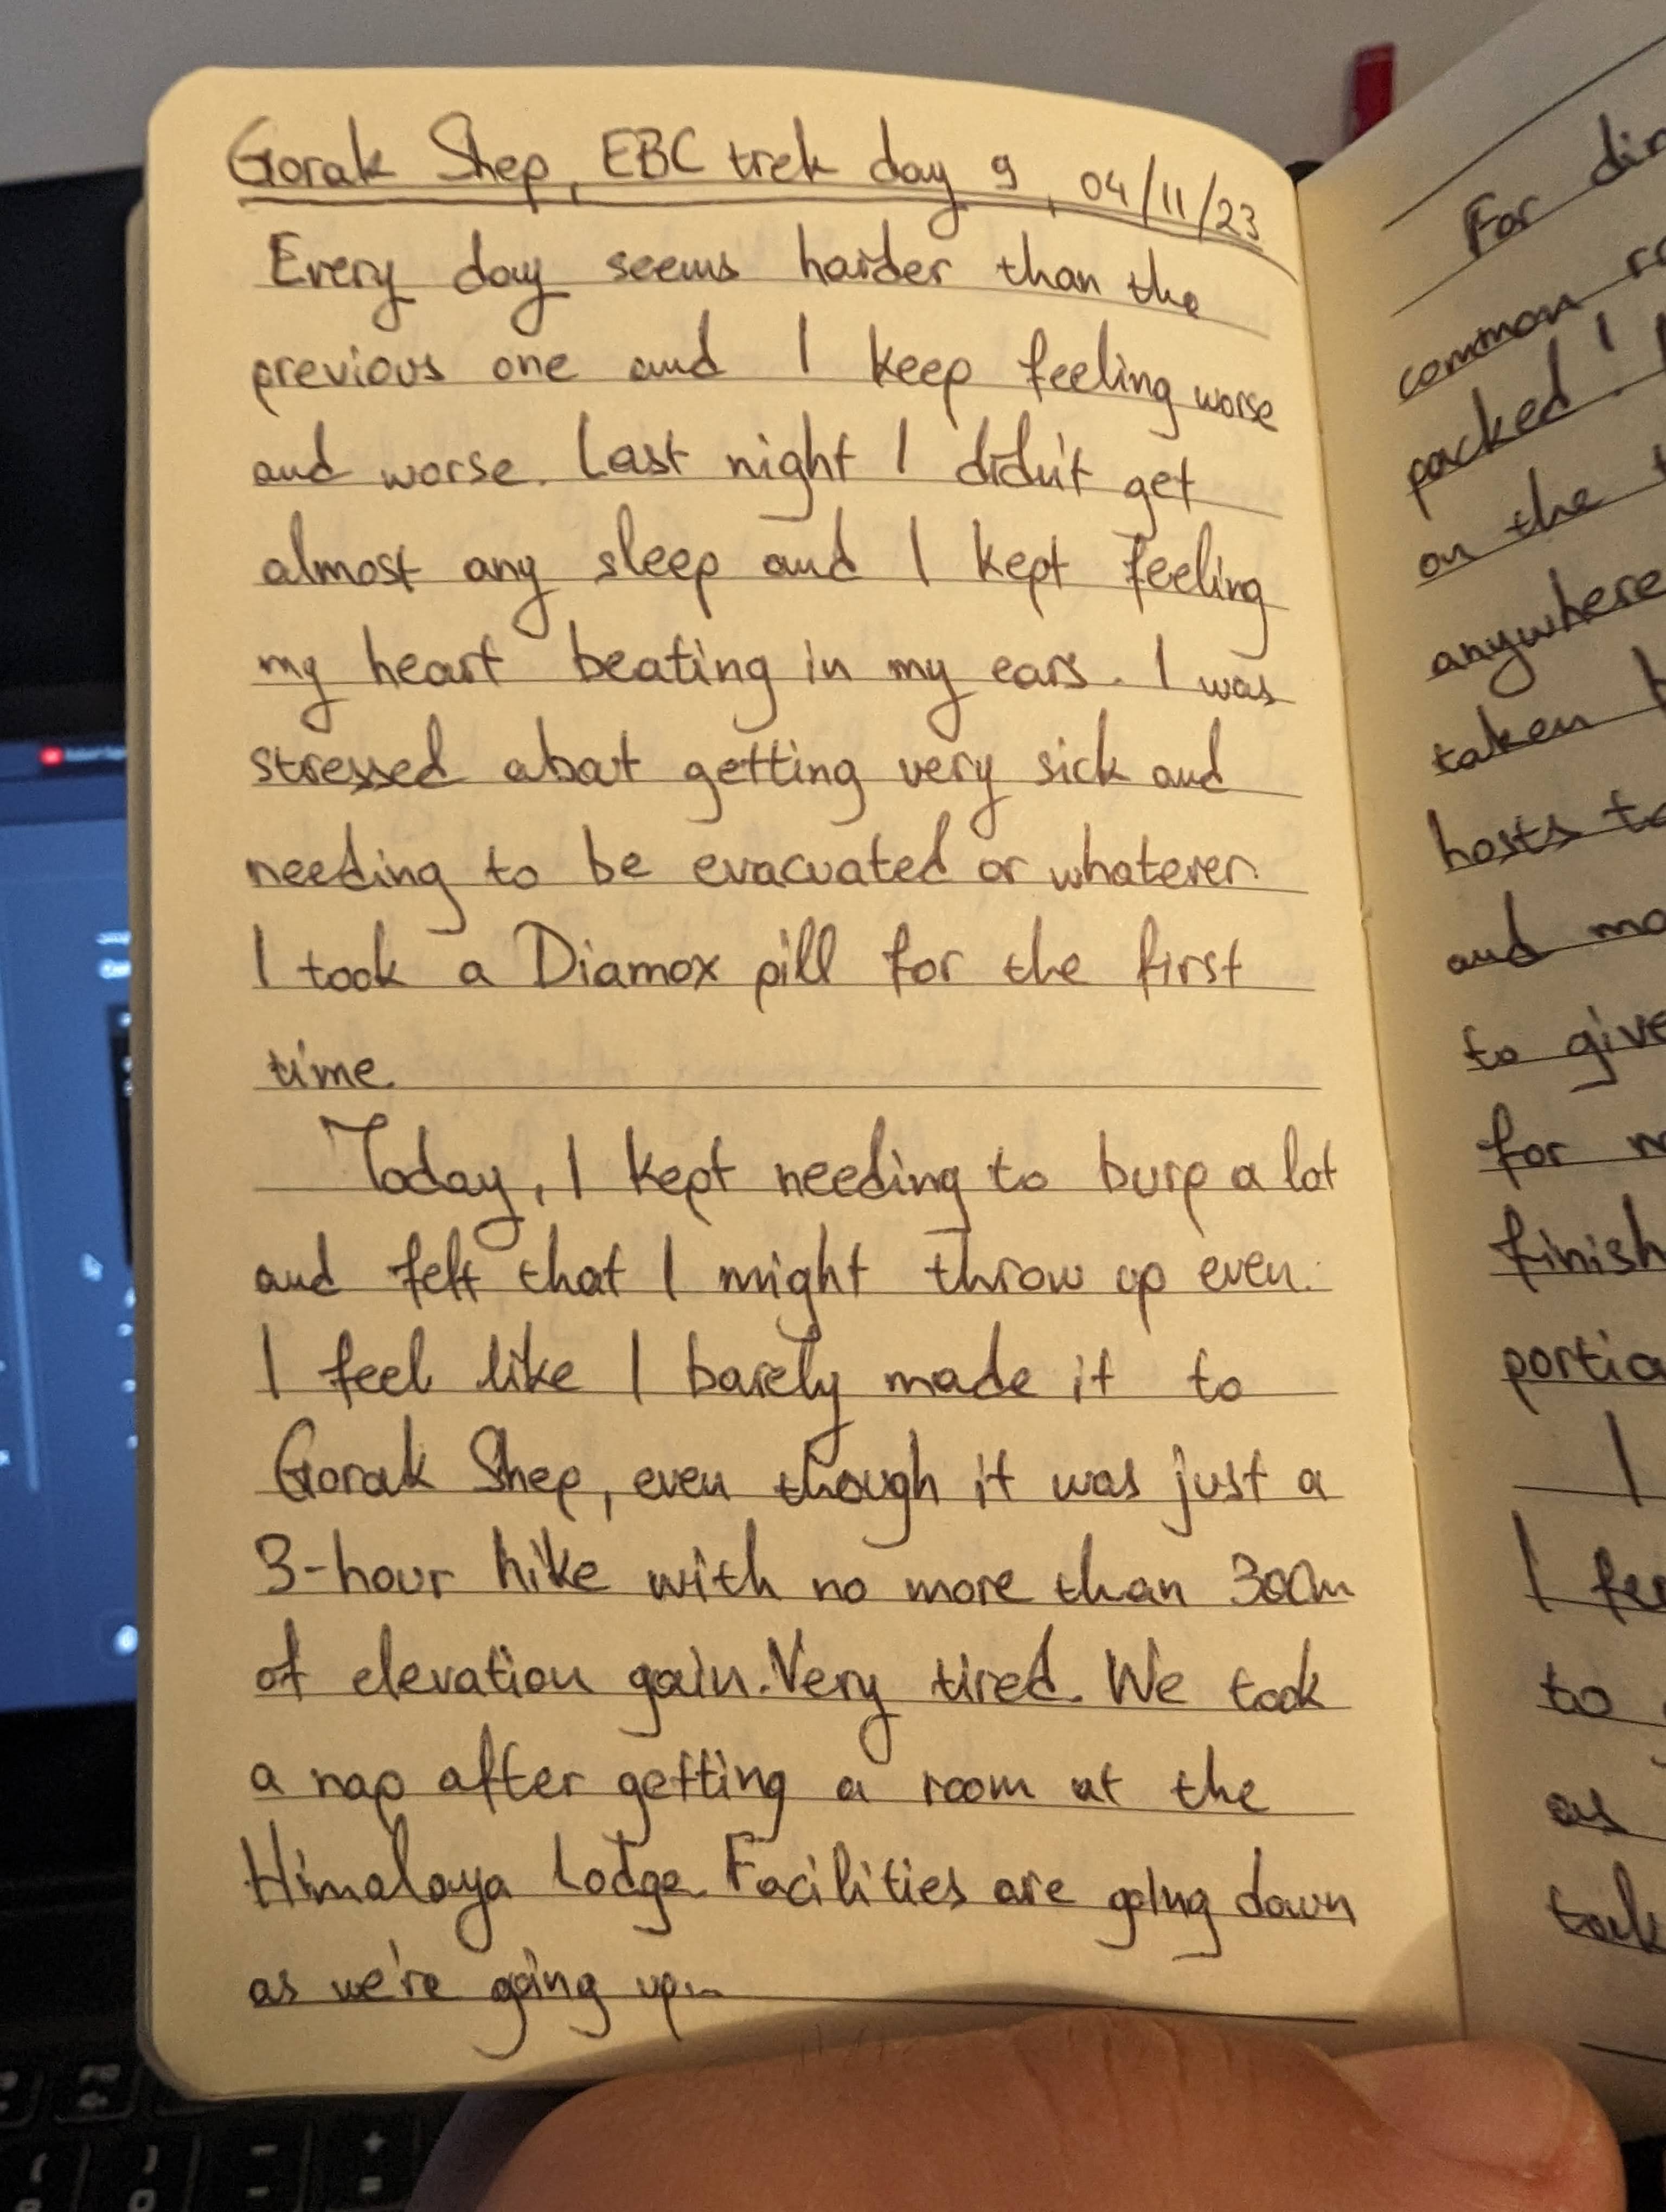 Gorak Shep, EBC trek day 9, 04/11/23
Every day seems harder than the
previous one and I keep feeling worse
and worse. Last night I didn't get
almost any sleep and I kept feeling
my heart beating in my ears. I was
stressed about getting very sick and
needing to be evacuated or whatever.
I took a Diamox pill for the first
time.
Today, I kept needing to burp a lot
and felt that I might throw up even.
I feel like I barely made it to
Gorak Shep, even though it was just a
3-hour hike with no more than 300m
of elevation gain. Very tired. We took
a nap after getting a room at the
Himalaya Lodge. Facilities are going down
as we're going up...
For
common
packed! I
on the
anywhere
taken
hosts to
and
to give
for
finish
I
I
to
as